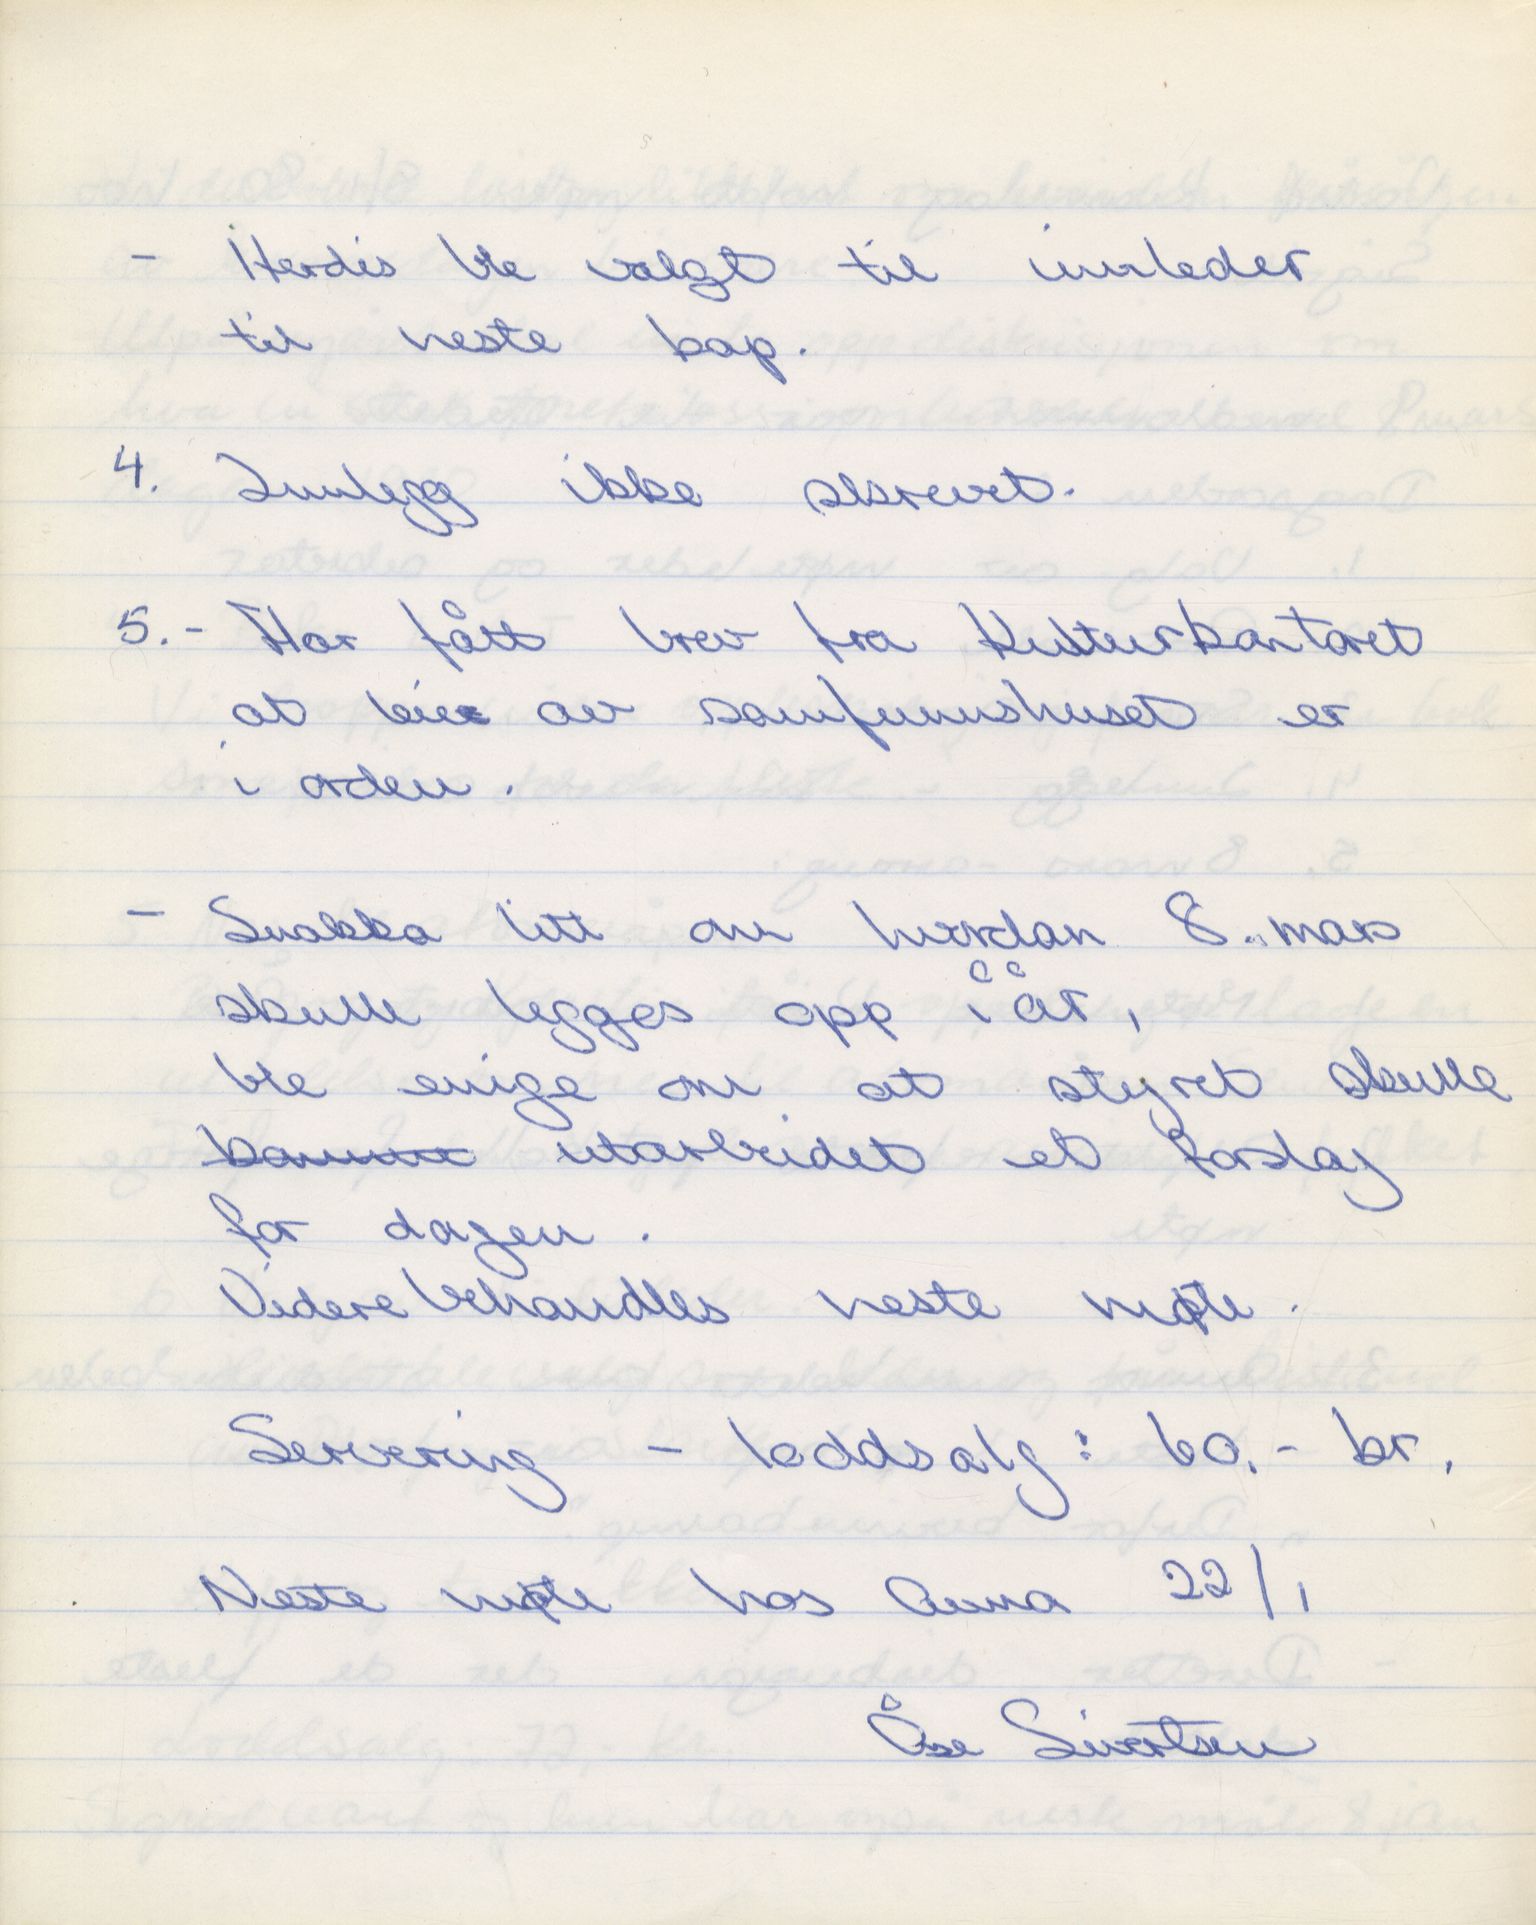 - Herdis ble valgt til innleder
til neste kap.
4. Innlegg ikke skrevet.
5. - Har fått brev fra Kulturkontoret
at leie av samfunnshuset er
i orden.
- Snakka litt om hvordan 8. mars
skulle legges opp i år,
ble enige om at styret skulle
utarbeidet et forslag
for dagen.
Videre behandles neste møte.
Servering - loddsalg: 60.- kr.
Neste møte hos Anna 22/1
Åse Sivertsen